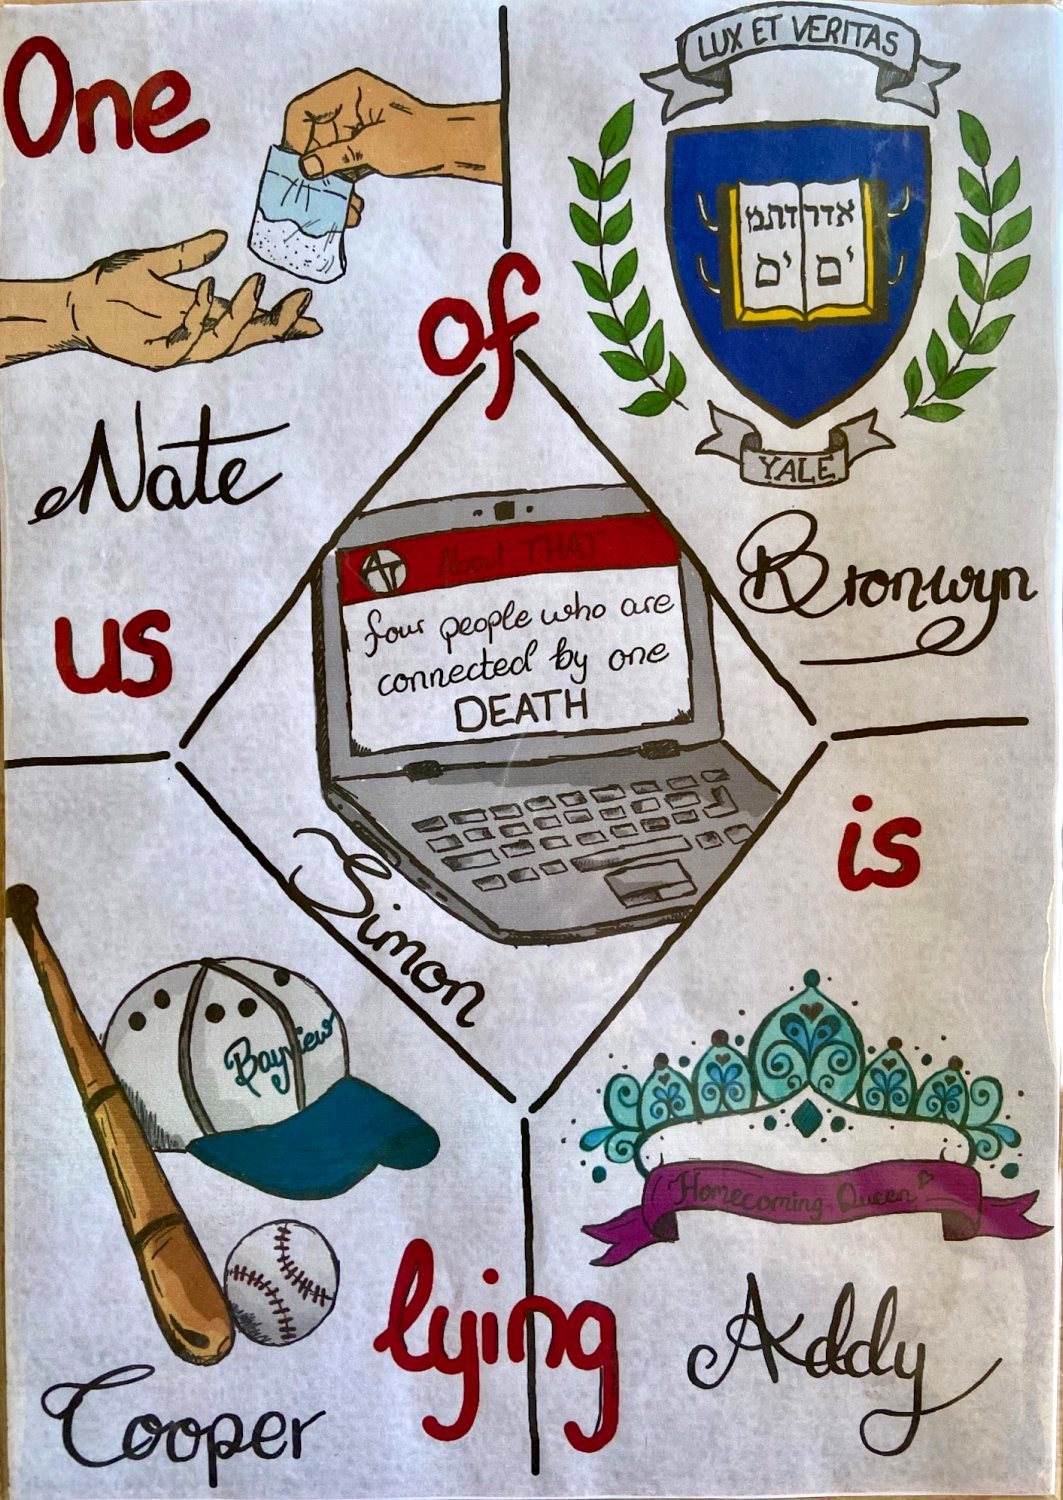 One
LUX ET VERITAS
אדר דתמ
ים ים
YALE
of
Nate
Bronwyn
us
AT About THAT
four people who are
connected by one
DEATH
Simon
is
Bayview
Homecoming Queen
lying
Cooper
Addy